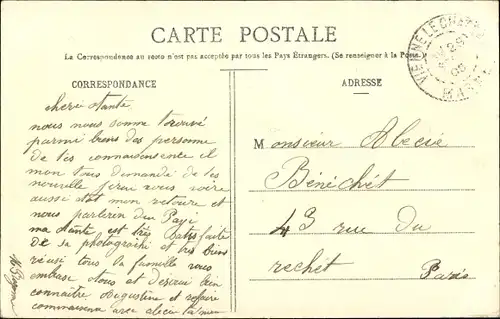 CARTE POSTALE
La Correspondance au recto n'est pas acceptée par tous les Pays Étrangers. (Se renseigner à la Poste
CORRESPONDANCE
ADRESSE
VIENNE LE CHATEAU
MARNE
cheri tante
nous nous somme trouvé
parmi biens des personne
de tes connaisensente il
mon tous demandé de tes
nouvelle jerai vous voire
aussi tot mon retoure et
nous parleron du Payi
ma tante est très satisfaite
de sa photograhi et tres bien
réusi tous la famille vous
embase tous et désirai bien
connaitre Augustine et refaire
avec
Monsieur
Bénéchét
43 rue du
rechét
Paris